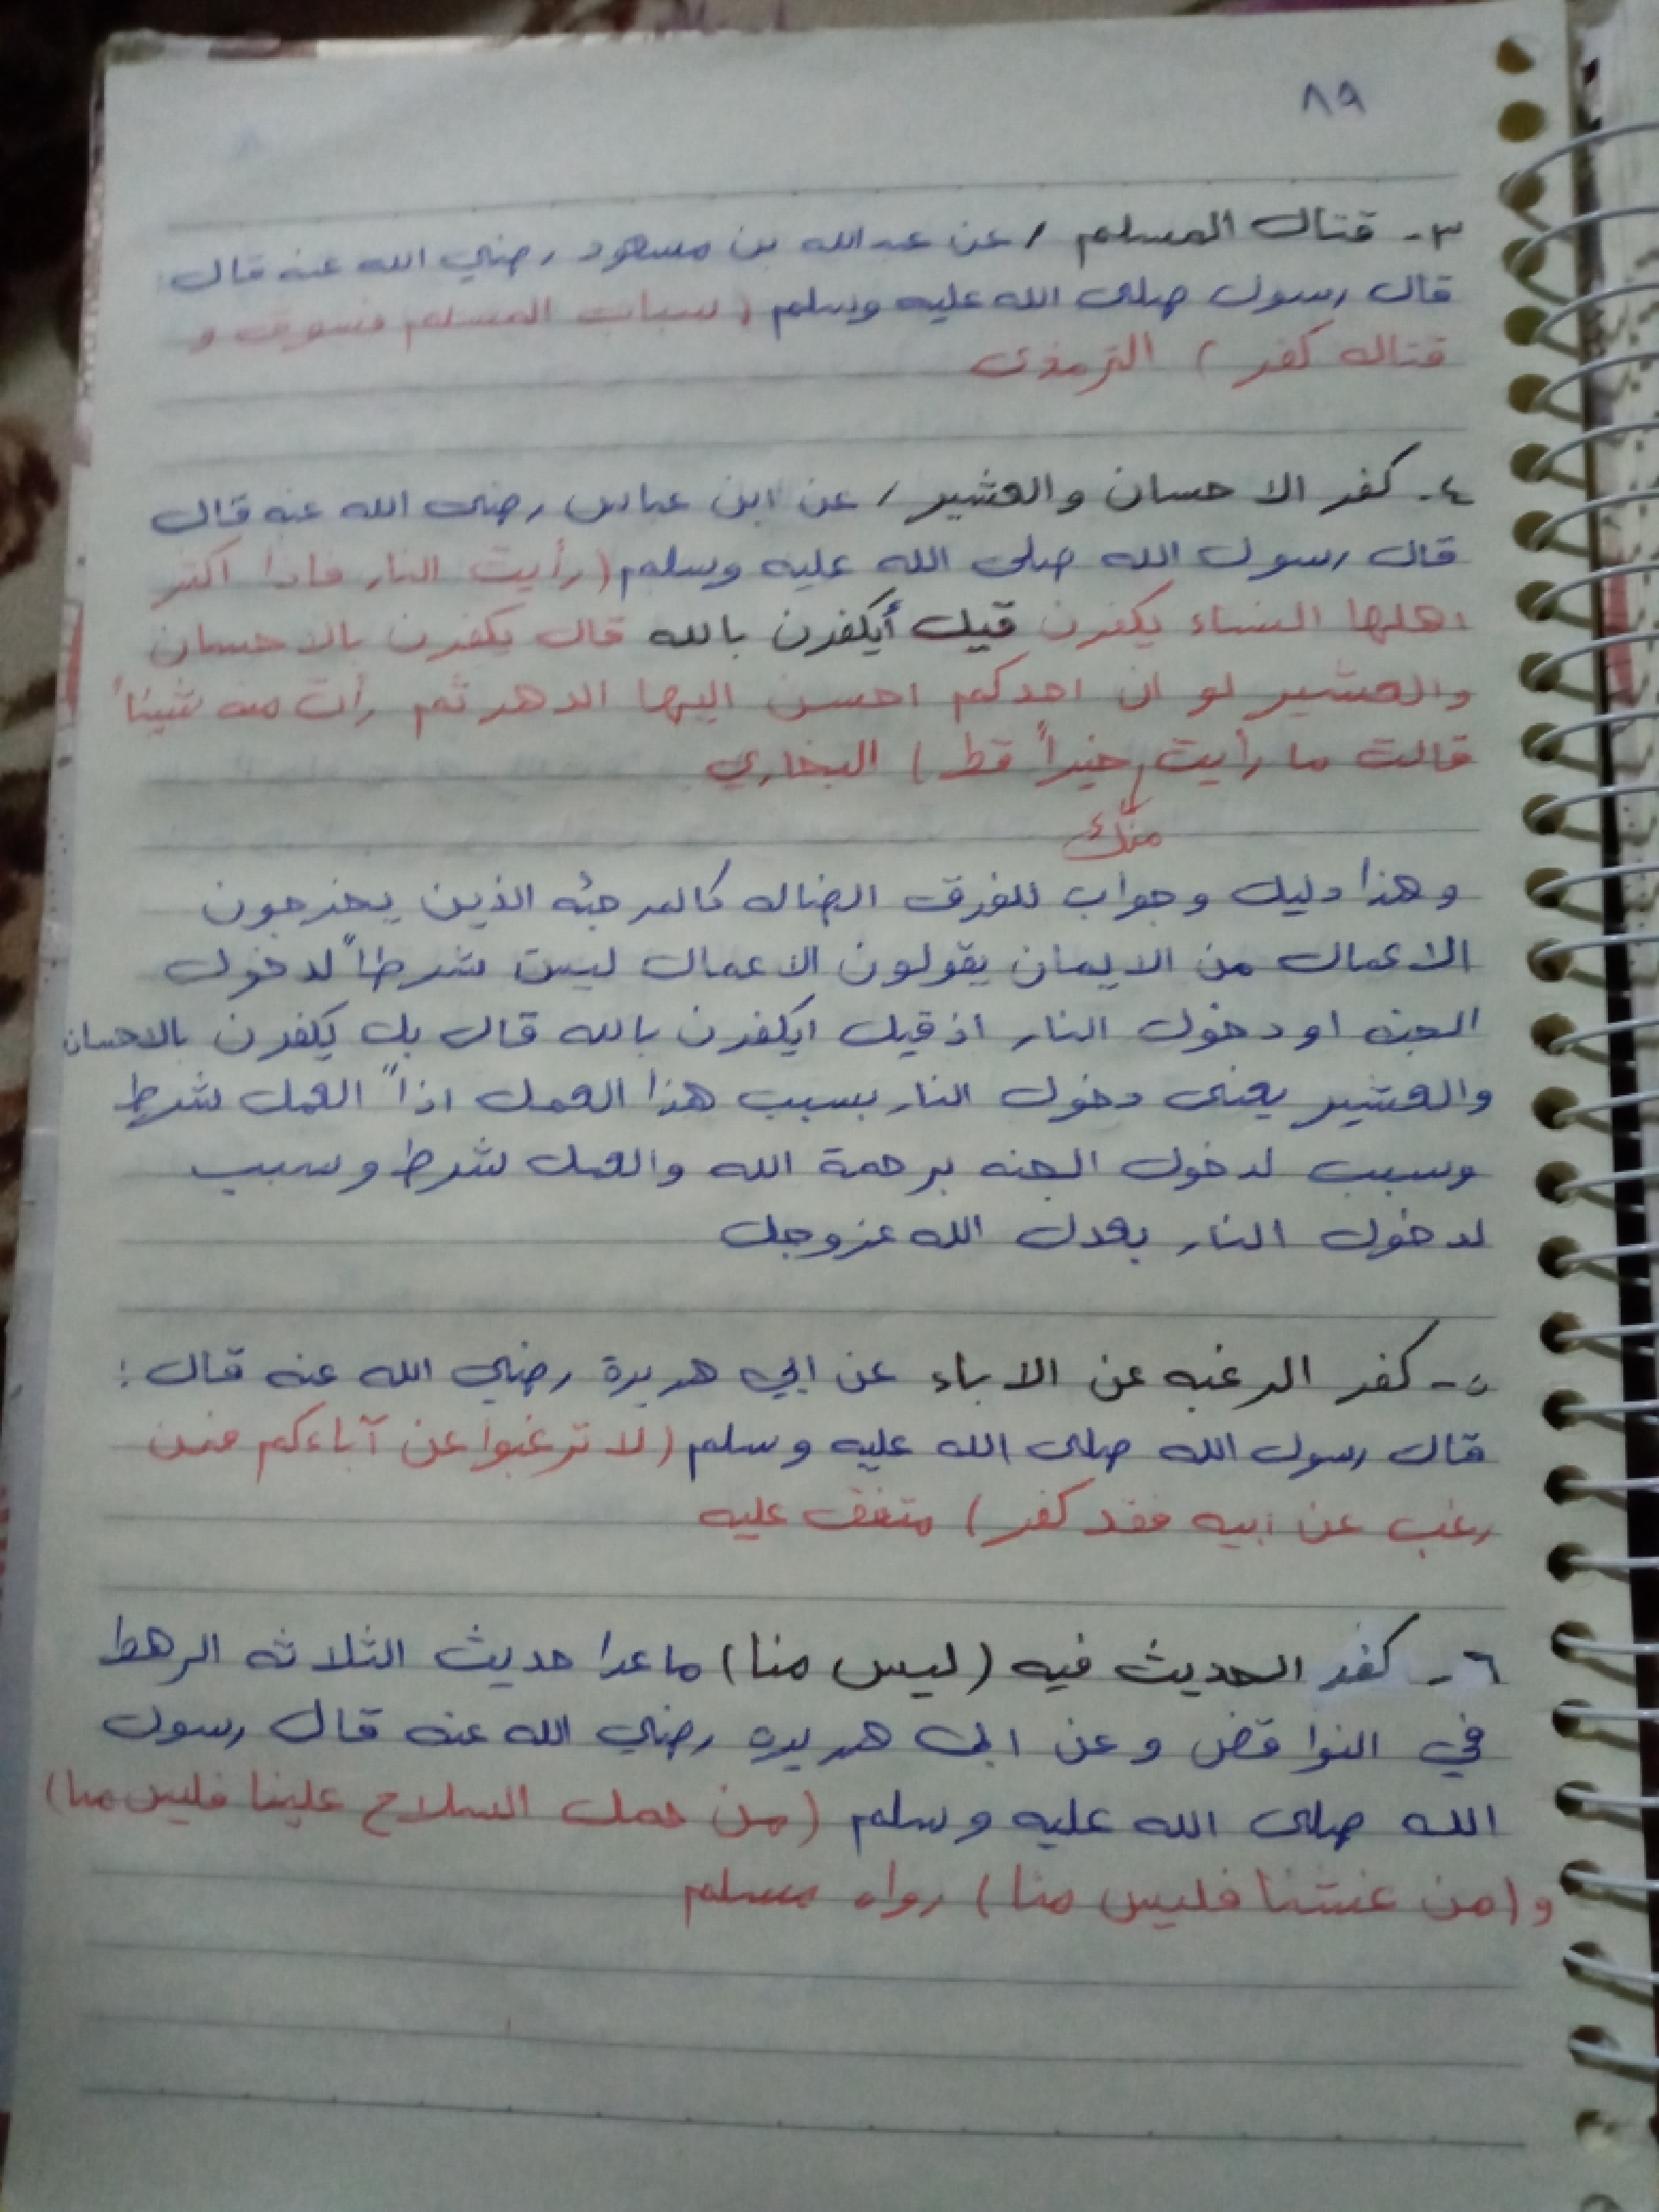 ٨٩
٣- قتال المسلم / عن عبدالله بن مسعود رضي الله عنه قال:
قال رسول صلى الله عليه وسلم (سباب المسلم فسوق و
قتاله كفر) الترمذى
٤- كفر الاحسان والعشير / عن ابن عباس رضى الله عنه قال
قال رسول الله صلى الله عليه وسلم (رأيت النار فاذا اكثر
اهلها النساء يكفرن قيل أيكفرن بالله قال يكفرن بالاحسان
والعشير لو ان احدكم احسن اليها الدهر ثم رأت منه شيئاً
قالت ما رأيت خيراً قط) البخاري
منك
وهذا دليل وجواب للفرق الضاله كالمرجئه الذين يخرجون
الاعمال من الايمان يقولون الاعمال ليست شرطاً لدخول
الجنه او دخول النار اذ قيل ايكفرن بالله قال بل يكفرن بالاحسان
والعشير يعنى دخول النار بسبب هذا العمل اذاً العمل شرط
وسبب لدخول الجنه برحمة الله والعمل شرط وسبب
لدخول النار بعدل الله عزوجل
٥- كفر الرغبه عن الاباء عن ابي هريرة رضي الله عنه قال:
قال رسول الله صلى الله عليه وسلم (لا ترغبوا عن آباءكم فمن
رغب عن ابيه فقد كفر) متفق عليه
٦- كفر الحديث فيه (ليس منا) ماعدا حديث الثلاثه الرهط
في النواقض وعن ابى هريره رضي الله عنه قال رسول
الله صلى الله عليه وسلم (من حمل السلاح علينا فليس منا)
و(من غشنا فليس منا) رواه مسلم